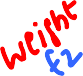 weight
£2